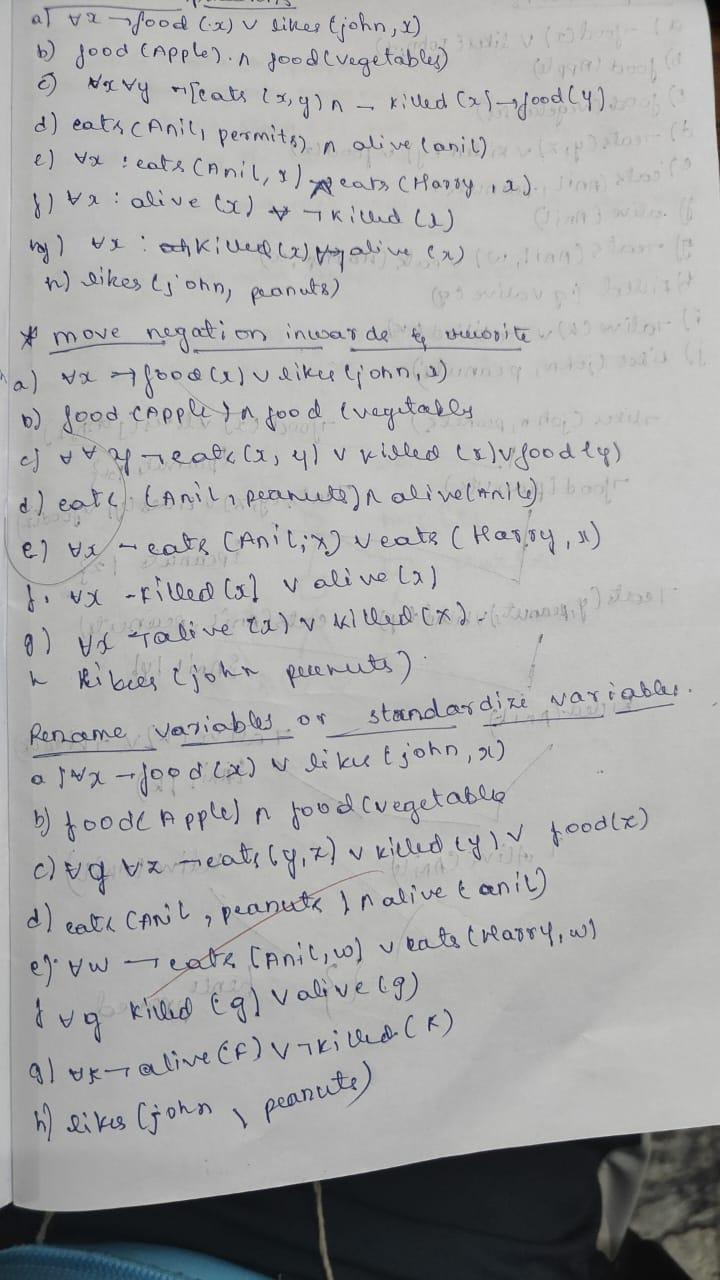 a) ∀x ¬food(x) ∨ likes(john, x)
b) food(Apple) ∧ food(vegetables)
c) ∀x∀y ¬[eats (x, y) ∧ ¬ killed (x] → food(y)
d) eats (Anil, permits) ∧ alive (anil)
e) ∀x : eats (Anil, x) eats (Harry, x).
f) ∀x : alive (x) ¬killed (x)
g) ∀x : killed(x) alive (x)
h) likes (john, peanuts)
* move negation inwards & rewrite
a) ∀x ¬food(x) ∨ likes (john, x)
b) food (Apple) ∧ food (vegetables
c) ∀ ∀ y ¬eats (x, y) ∨ killed (x) ∨ food(y)
d) eats (Anil, peanuts) ∧ alive (Anil)
e) ∀x ¬eats (Anil, x) ∨ eats (Harry, x)
f. ∀x -killed [x] ∨ alive (x)
g) ∀x ¬alive (x) ∨ killed (x).
h likes (john peanuts)
Rename variables or standardize variables.
a) ∀x ¬food(x) ∨ like (john, x)
b) food( Apple) ∧ food (vegetable
c) ∀y ∀z ¬eats (y, z) ∨ killed (y) ∨ food(z)
d) eats (Anil, peanuts) ∧ alive (anil)
e) ∀w ¬eats (Anil, w) ∨ eats (Harry, w)
f ∀g killed (g) ∨ alive (g)
g) ∀k ¬ alive (k) ∨ ¬killed (k)
h) likes (john, peanuts)